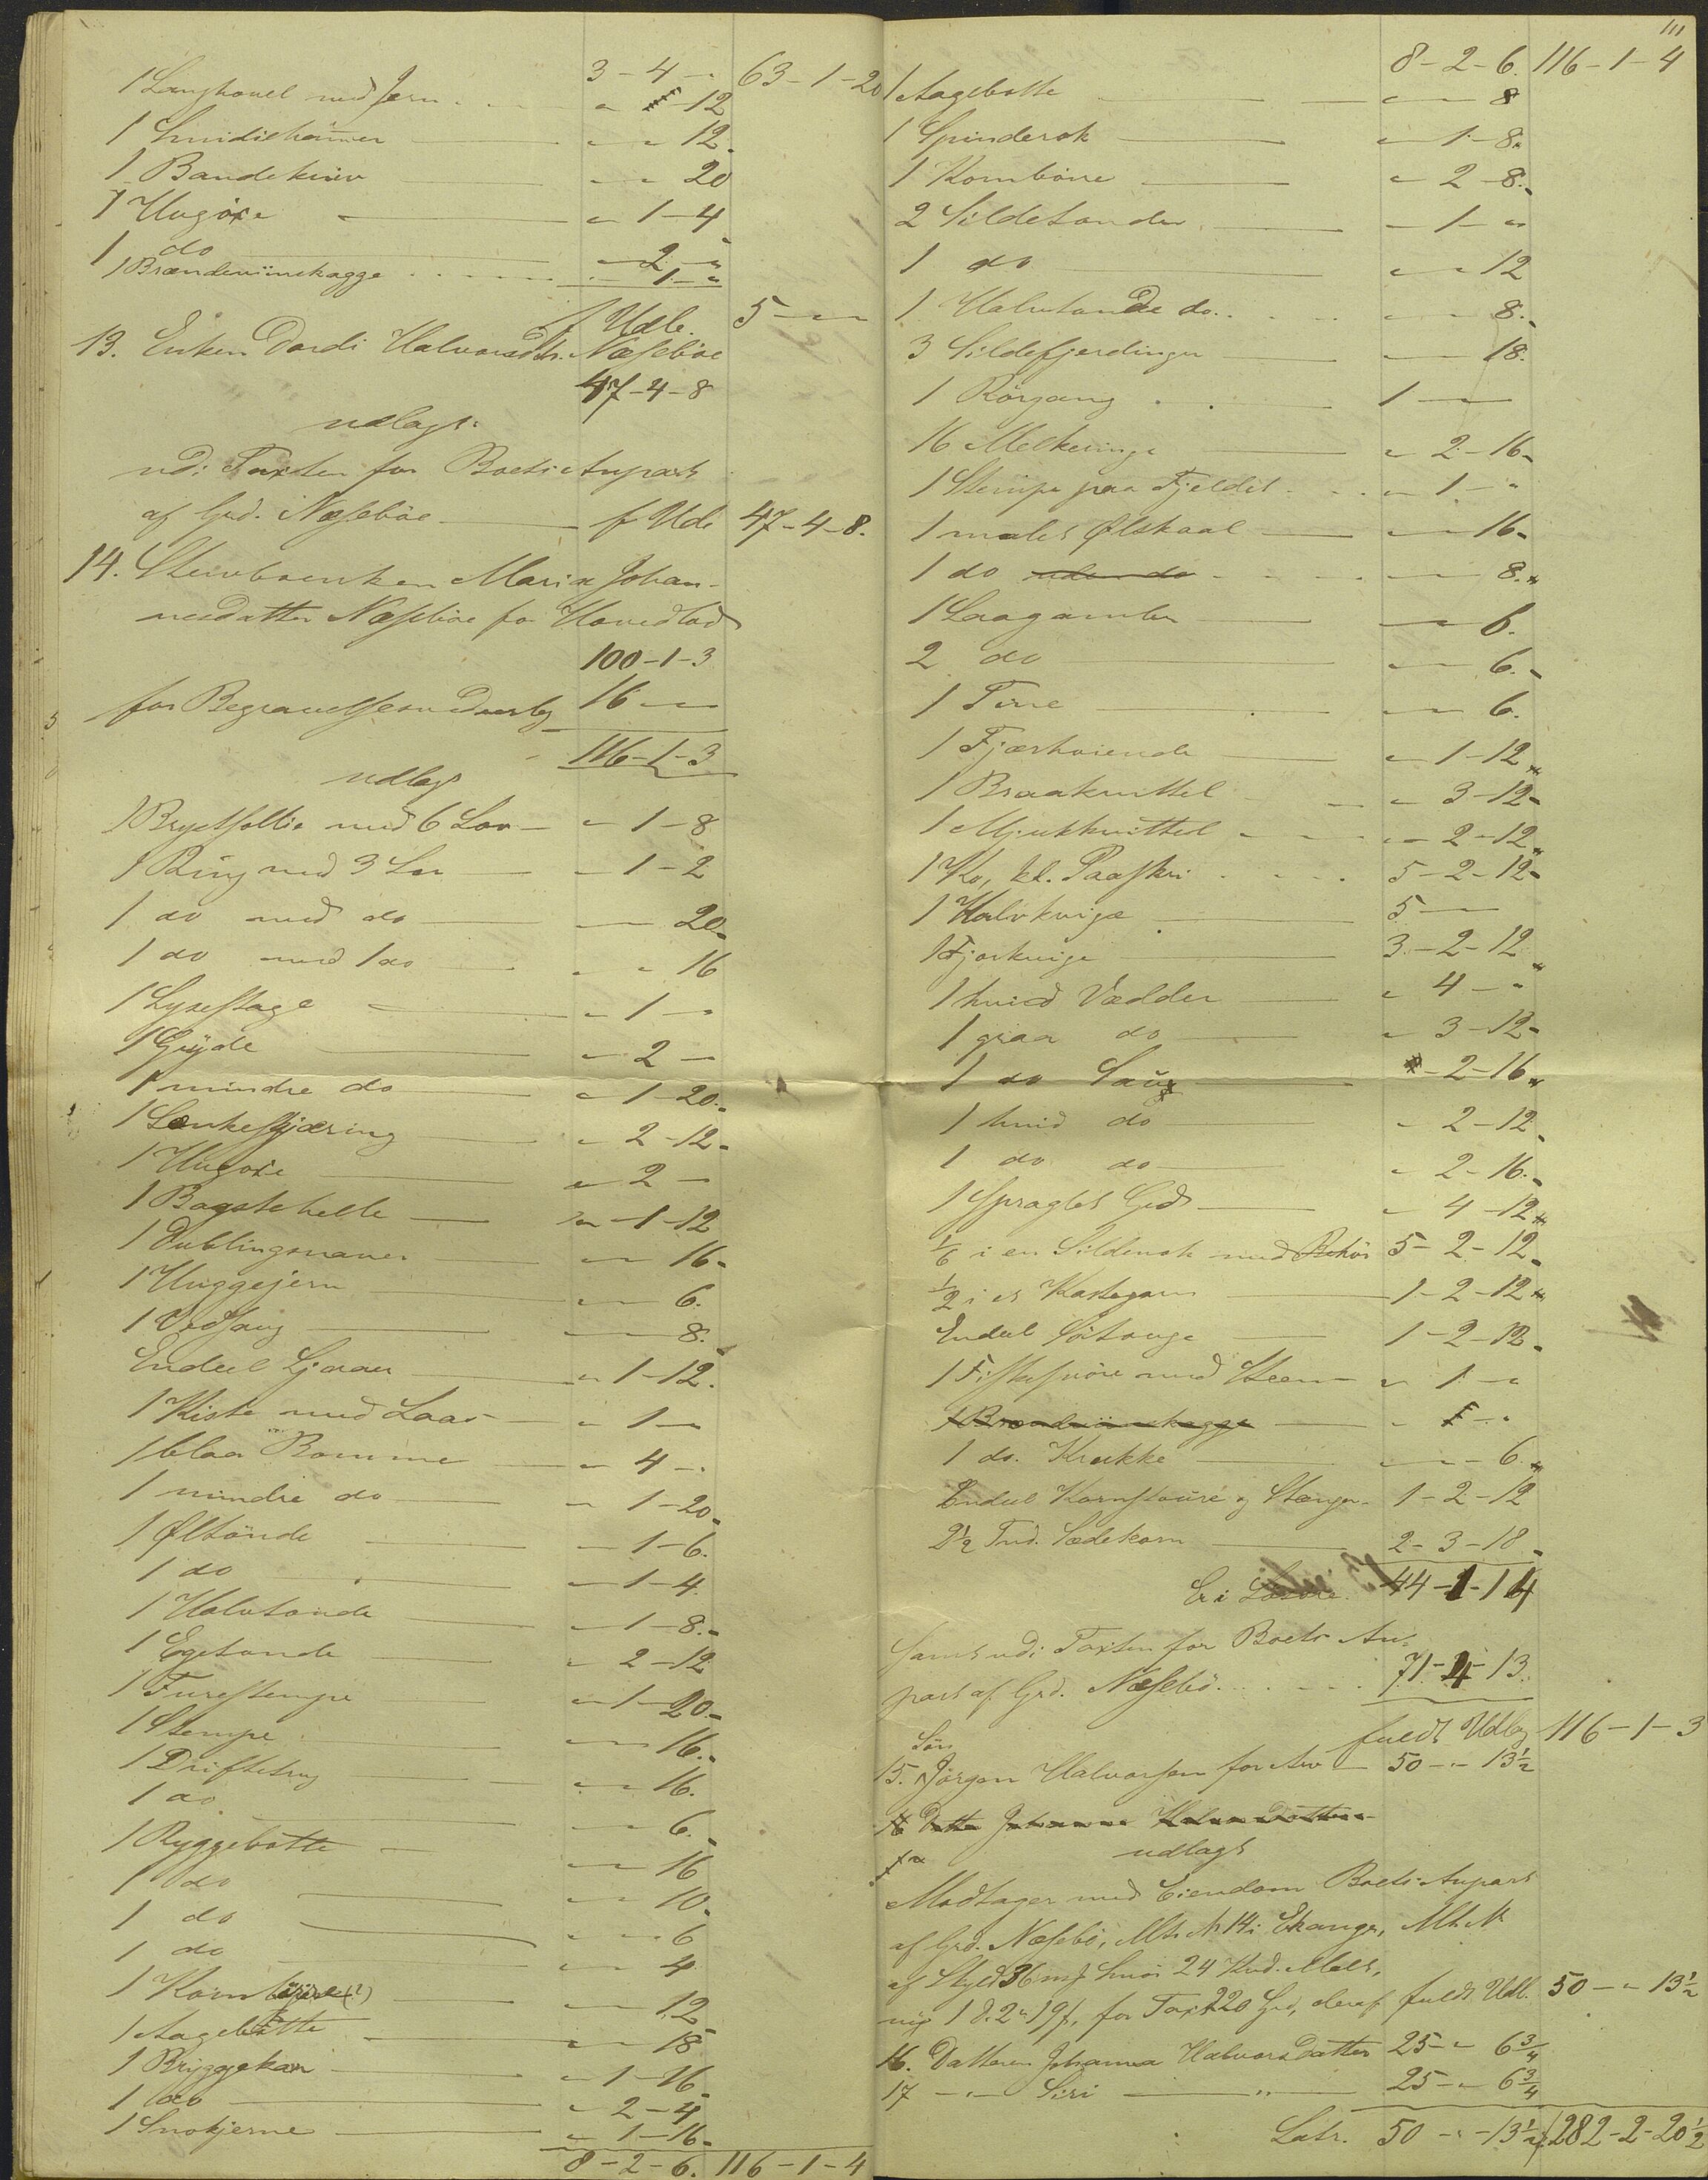 3-4-" 63-1-20
1 Langhøvel med Jern " -12
1 Smidiehammer " " 12
1 Baandekniv " " 20
1 Hugöxe " 1-4
1 do " 2-"
1 Brændeviinskagge 1-"
f Udl. 5-"-"
13. Enken Dordi Halvorsdtr. Næsebøe
47-4-8
udlagt
udi Taxten for Boets Anpart
af Grd. Næsebøe f Udl 47-4-8.
14. Stervboenken Maria Johan-
nesdatter Næsebøe for Hovedlod
100-1-3
for Begravelsesudverlg 16-"-"
116-1-3
udlagt
1 Brystsøllie med 6 Lov " 1-8
1 Ring med 3 Lov " 1-2
1 do med do " " 20
1 do med 1 do " " 16
1 Lysestage " 1-"
1 Gryde " 2-"
1 mindre do " 1-20
1 Lænkestjæring " 2-12
1 Hugöxe " 2-"
1 Bagstehelle " 1-12
1 Dublingsnaver " " 16
1 Huggejern " " 6.
1 Vedsaug " " 8.
Endeel Ljaaer " 1-12.
1 Kiste med Laas " 1-"
1 blaa Bomme " 4-"
1 mindre do " 1-20
1 Øltønde " 1-6.
1 do " 1-4
1 Halvtønde " 1-8.
1 Egetønde " 2-12
1 Furestempe " 1-20
1 Stempe " " 16.
1 Driftetrug " " 16.
1 do " " 6.
1 Ryggebøtte " " 16
1 do " " 10.
1 do " " 6
1 do " " 4
1 Kornbøre (?) " " 12
1 Aagebøtte " " 18
1 Bryggekar " 1-16
1 do " 2-4
1 Smokjerne " 1-16
8-2-6. 116-1-4
111
8-2-6. 116-1-4
1 Aagebøtte " " 8
1 Spinderok " 1-8.
1 Kornbøre " 2-8.
2 Sildetønder " 1-"
1 do " " 12
1 Halvtønde do. " " 8.
3 Sildefjerdinger " " 18.
1 Rörgang 1-"-"
16 Melkeringe " 2-16
1 Stempe paa Fjeldet " 1-"
1 malet Ølskaal " " 16
1 do uden do " " 8.
1 Laagamber " " 6.
2 do " " 6.
1 Tine " " 6.
1 Fjærhøiende " 1-12
1 Braakvittel " 3-12
1 Mjukkvittel " 2-12
1 Ko, kl. Paaskri 5-2-12
1 Kalvkvige 5-"-"
1 Fjorkvige 3-2-12
1 hvid Vædder " 4-"
1 graa do " 3-12
1 do Sau " 2-16
1 hvid do " 2-12
1 do do " 2-16.
1 spraglet Ged " 4-12
1/6 i en Sildenot med Behør 5-2-12
1/2 i et Kastegarn 1-2-12
Endeel Sötouge 1-2-12
1 Fiskesnøre med Steen " 1-"
1 Brændeviinskagge " 1-"
1 do. Krukke " " 6
Endeel Kornstoure og Stænger 1-2-12
2½ Tnd. Sædekorn 2-3-18
Er i Løsøre 44-1-14
samt udi Taxten for Boets An-
part af Grd. Næsebö 71-4-13.
fuldt Udlag 116-1-3
Søn
15. Jörgen Halvorsen for Arv 50-"-13½
16 Datter Johanna Halvorsdatter
udlagt
Modtager med Eiendom Boets Anpart
af Grd. Næsebö, Mtr. N 14 i Ekanger, Mt. N
af Skyld 36 mf Smør 24 Knd. Malt,
ny 1 d. 2 " 19 f, for Taxt 220 Spd, deraf fuldt Udl. 50-"-13½
16. Datteren Johanna Halvorsdatter 25-" 6¾
17 -"- Siri -"- 25-" 6¾
Latr. 50-"-13½ 282-2-20½